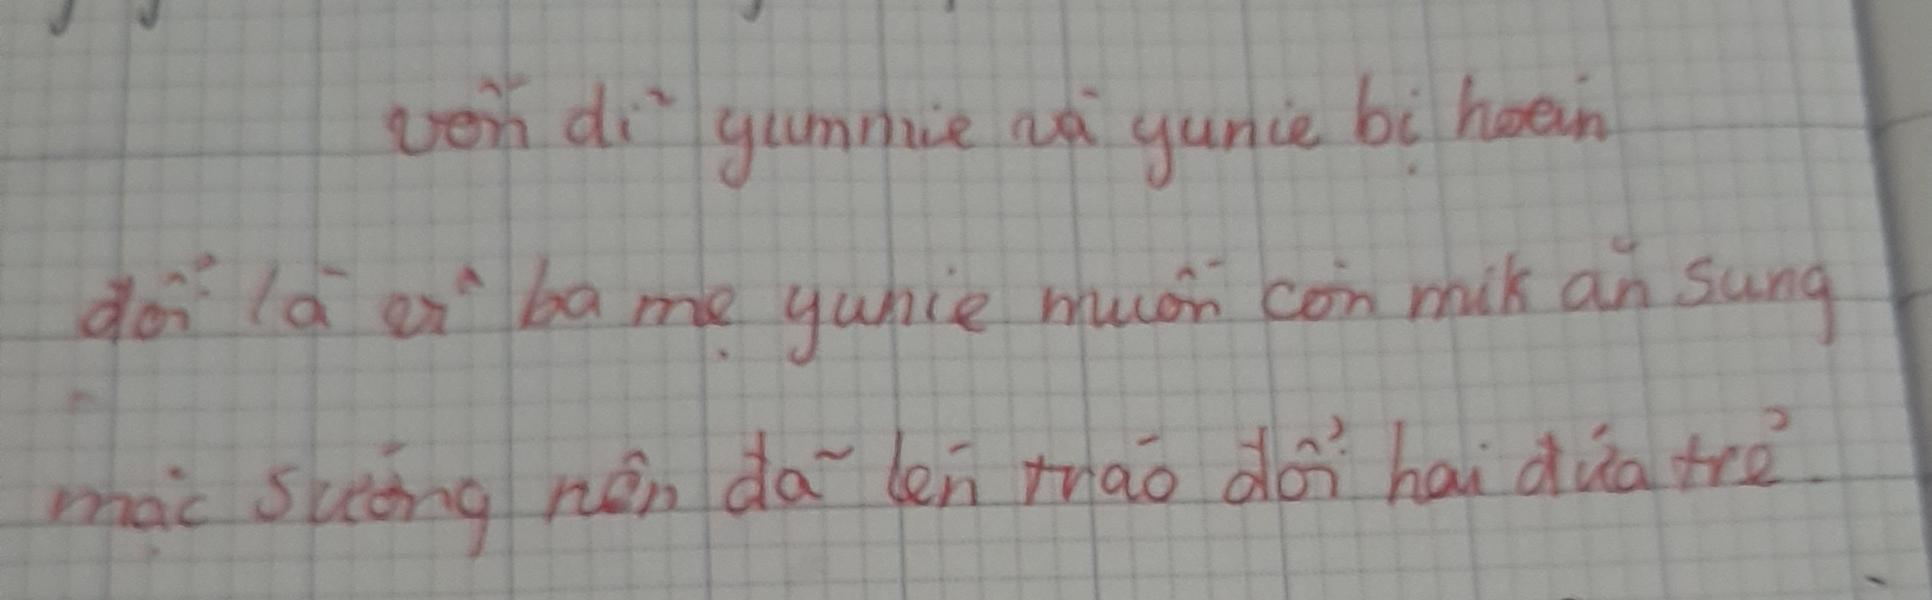 vốn dĩ yummie và yunie bị hoán
đổi là vì ba mẹ yunie muốn con mik ăn sung
mặc sướng nên đã lén tráo đổi hai đứa trẻ